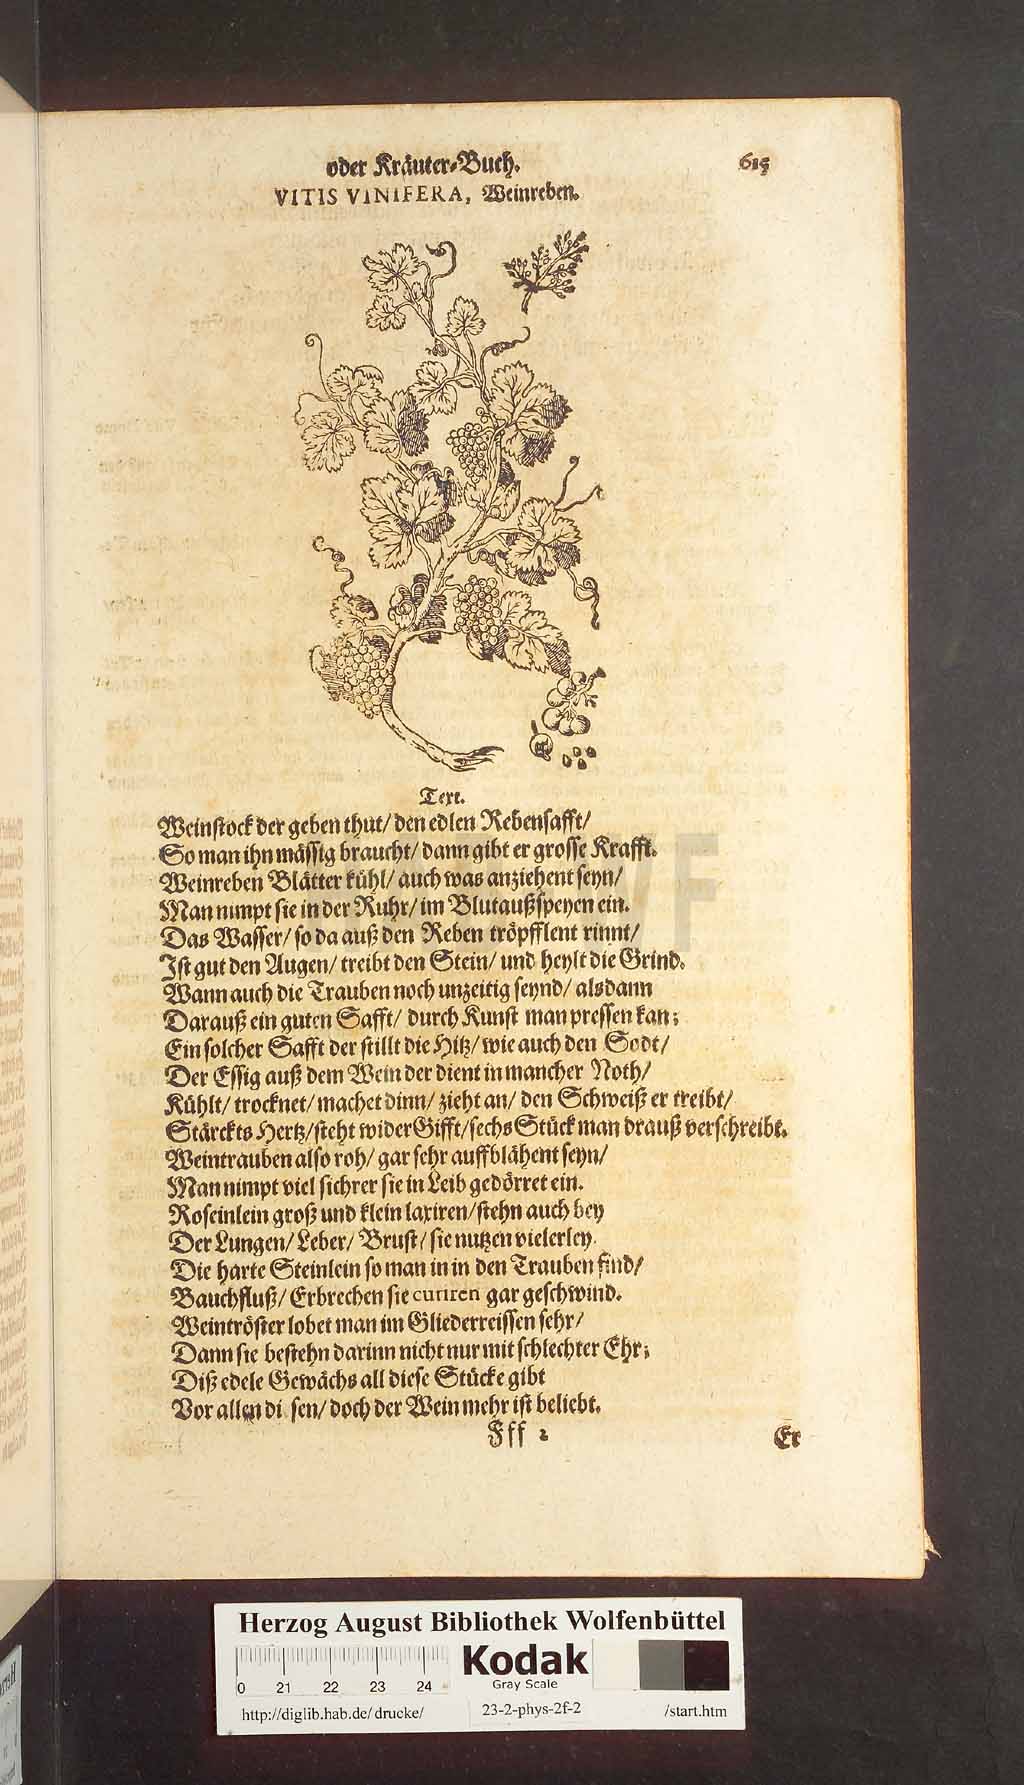 oder Kräuter-Buch. 615
VITIS VINIFERA, Weinreben.
Text.
Weinstock der geben thut/ den edlen Rebensafft/
So man ihn mässig braucht/ dann gibt er grosse Krafft.
Weinreben Blätter kühl/ auch was anziehent seyn/
Man nimpt sie in der Ruhr/ im Blutaußspeyen ein.
Das Wasser/ so da auß den Reben tröpfflent rinnt/
Ist gut den Augen/ treibt den Stein/ und heylt die Grind.
Wann auch die Trauben noch unzeitig seynd/ alsdann
Darauß ein guten Safft/ durch Kunst man pressen kan;
Ein solcher Safft der stillt die Hitz/ wie auch den Sodt/
Der Essig auß dem Wein der dient in mancher Noth/
Kühlt/ trocknet/ machet dinn/ zieht an/ den Schweiß er treibt/
Stärckts Hertz/ steht wider Gifft/ sechs Stück man drauß verschreibt.
Weintrauben also roh/ gar sehr auffblähent seyn/
Man nimpt viel sichrer sie in Leib gedörret ein.
Roseinlein groß und klein laxiren/ stehn auch bey
Der Lungen/ Leber/ Brust/ sie nutzen vielerley.
Die harte Steinlein so man in in den Trauben find/
Bauchfluß/ Erbrechen sie curiren gar geschwind.
Weintröster lobet man im Gliederreissen sehr/
Dann sie bestehn darinn nicht nur mit schlechter Ehr;
Diß edele Gewächs all diese Stücke gibt
Vor allen di sen/ doch der Wein mehr ist beliebt.
Fff 2 Er
Herzog August Bibliothek Wolfenbüttel
0 21 22 23 24
Kodak
Gray Scale
http://diglib.hab.de/drucke/ 23-2-phys-2f-2 /start.htm